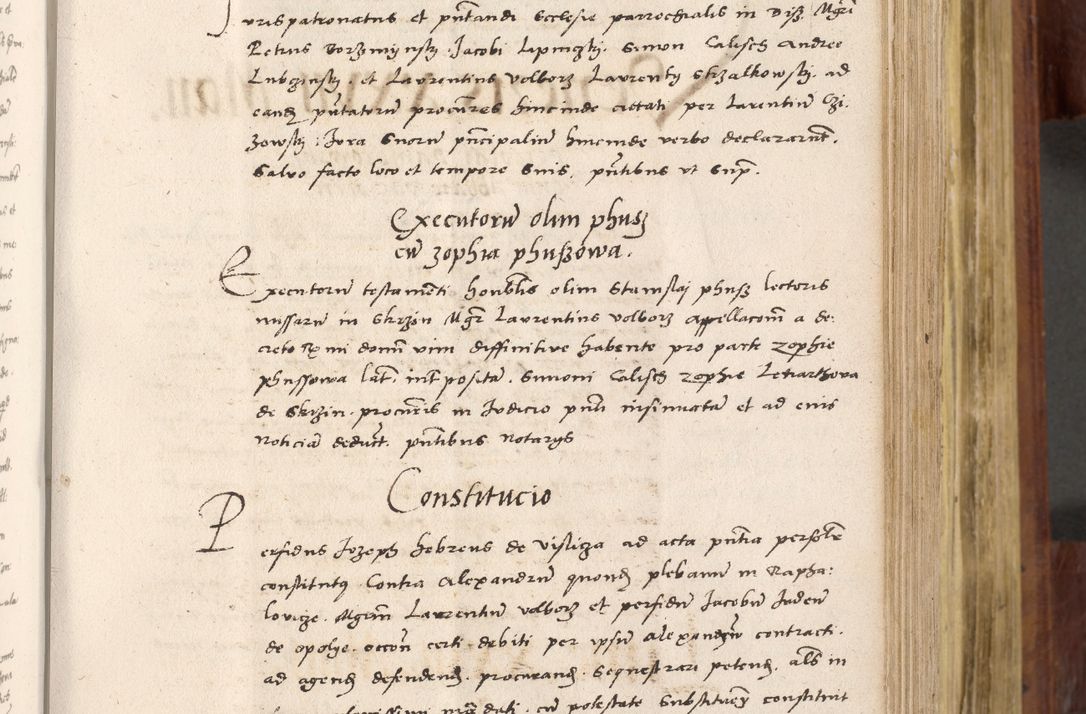 uris patronatus et pñtandi Ecclesie parrochialis in Diß Mgri
Petrus Borzminsky Jacobi Lipniczky. Simon Calisch Andree
Lubczinsky et Laurentius Volborz Laurenty Strzalkowsky. ad
eand pñtatorũ procũres hincinde citati per Laurentiũ Czi:
zowsky. Jura Suorũ pñcipaliũ hincinde verbo declararũt.
Salvo facto loco et tempore Suis, pñtibus ut Sup.
Executorũ olim phusz
cũ zophia phuszowa.
Executorũ testamẽti honblis olim Stanislai phusz lectoris
missarũ in Skrzin Mgr Laurentius Volborz appellacõm a de:
creto Rx mi domĩ vim diffinitive habente pro parte zophie
phussowa lat. int posita. Simoni Calisch zophie
de Skrzin. procũris in Judicio pñti insinuata et ad eius
noticiã deduct. pñtibus Notarys
Constitucio
Perfidus Jozeph hebreus de Visliza ad acta pñtia persolr
constitutus Contra Alexandrũ quond plebanũ in Rapha:
lovicze. Mgrm Laurentiũ Volborz et perfidũ Jacobũ Judeũ
de opolye. occõn certi debiti per ipsũ Alexandrũ contracti.
ad agend defendend. procurand. Sequestrari petend. als in
mãdati. cũ potestate Substituen constituit